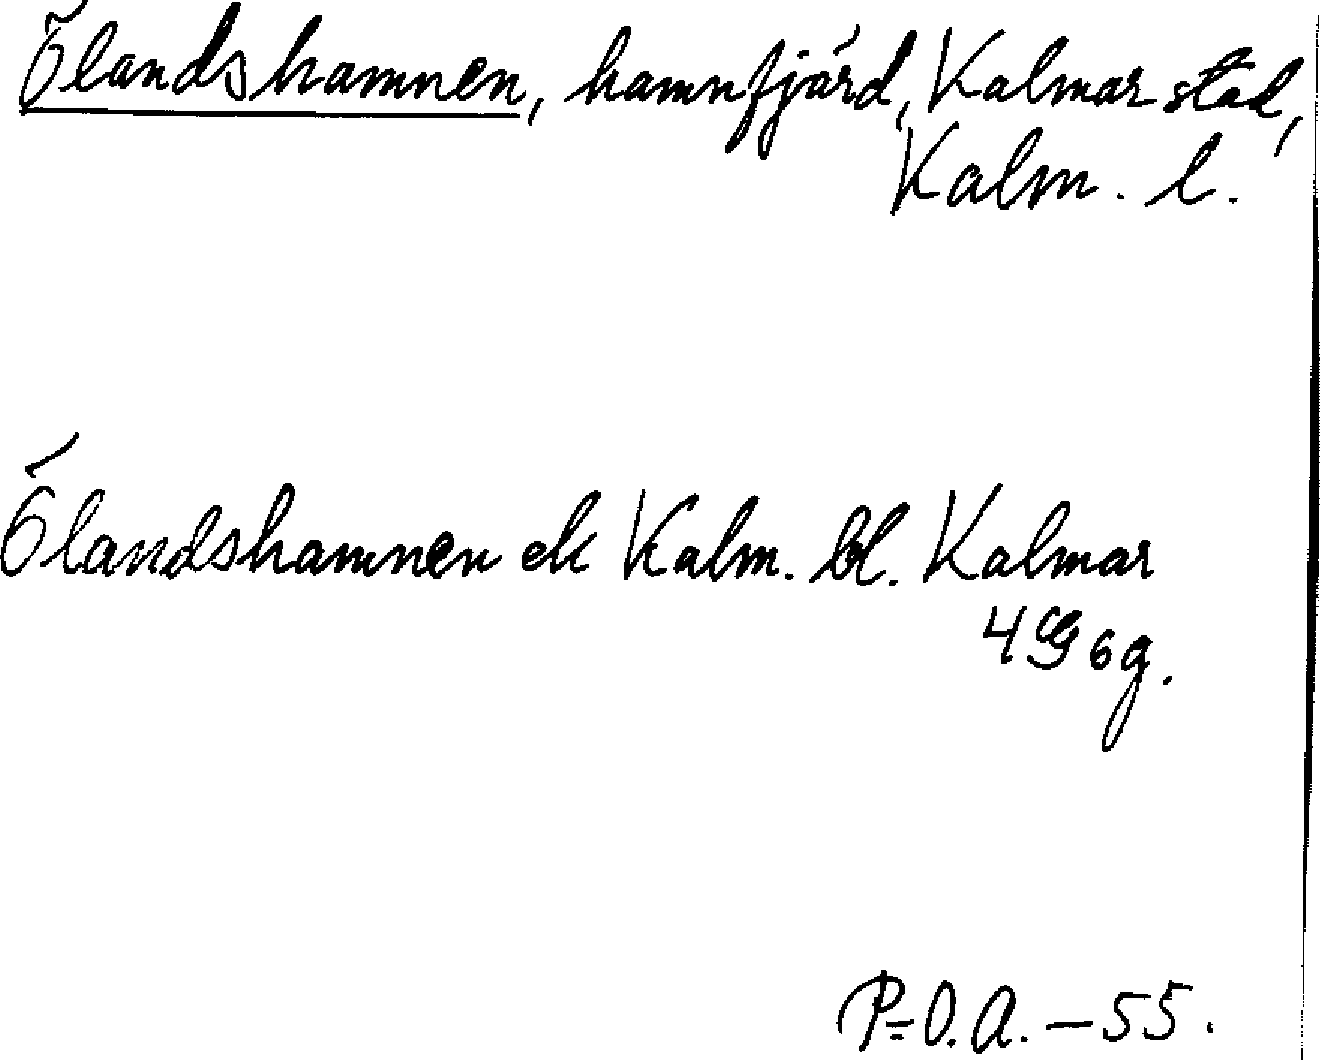 Ölandshamnen, hamnfjärd, Kalmar stad,
Kalm. l.
Ölandshamnen ek Kalm. bl. Kalmar
4 G 6 g.
P=O.A. – 55.